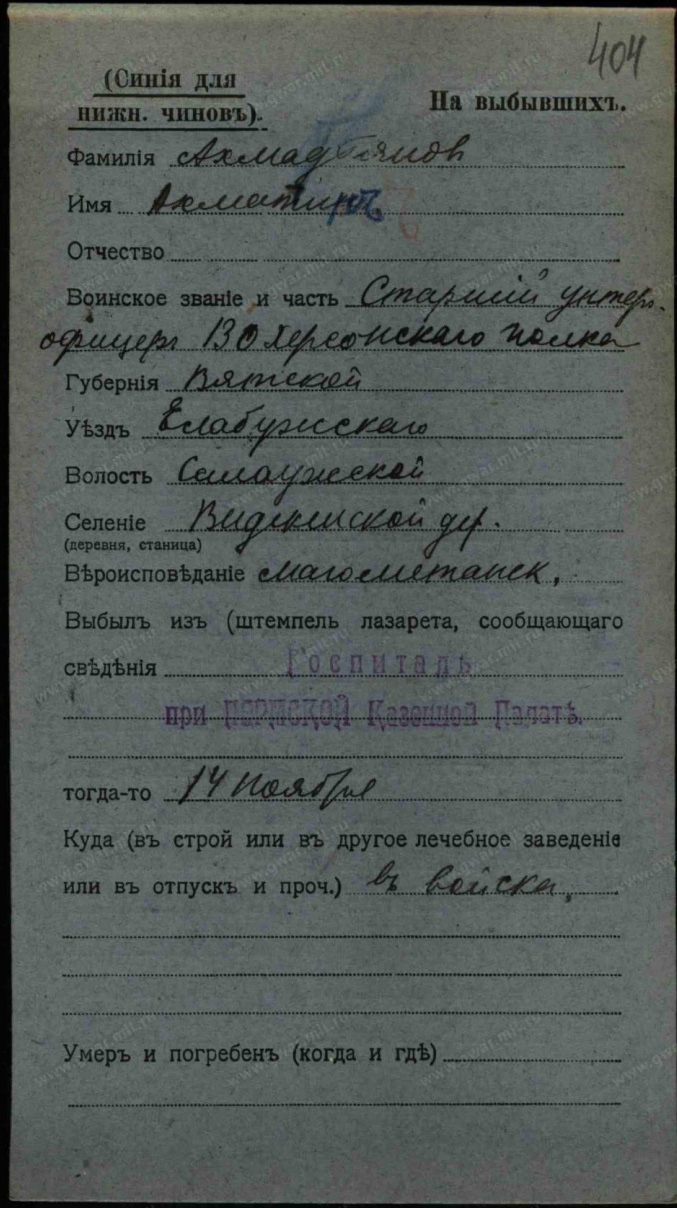 404
(Синія для
нижн. чиновъ).
На выбывшихъ.
Фамилія
Имя
Отчество
Воинское званіе и часть Старшій унтеръ-
офицеръ 130 Херсонскаго полка
Губернія Вятской
Уѣздъ Елабужскаго
Волость Салаужской
Селеніе дер.
(деревня, станица)
Вѣроисповѣданіе магометанск.
Выбылъ изъ (штемпель лазарета, сообщающаго
свѣдѣнія Госпиталь
при ПЕРМСКОЙ Казенной Палатѣ.
тогда-то 14 Ноября
Куда (въ строй или въ другое лечебное заведеніе
или въ отпускъ и проч.) въ войска.
Умеръ и погребенъ (когда и гдѣ)